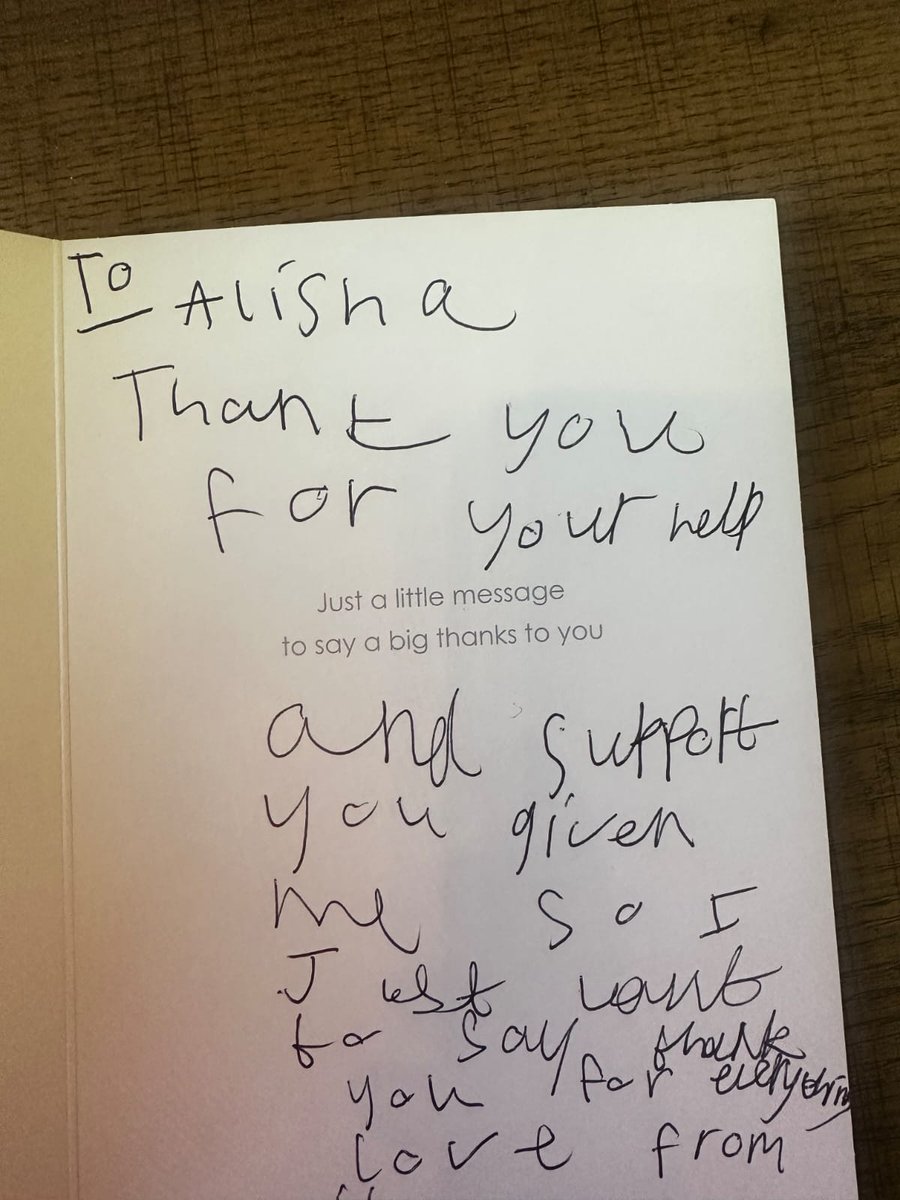 To Alisha
Thank you
for your help
Just a little message
to say a big thanks to you
and support
you given
me so I
Just want
to say thank
you for everything
love from